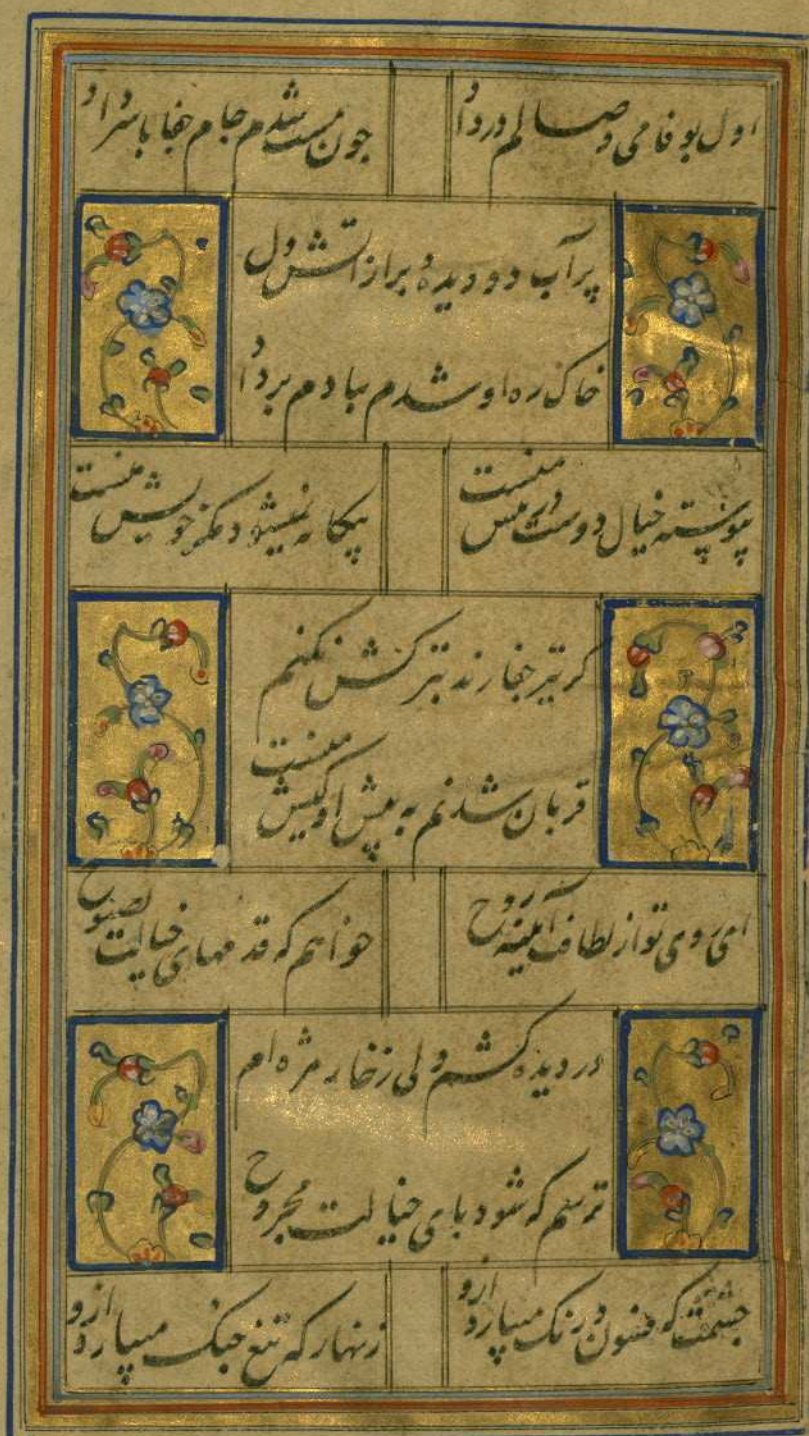 اول بوفا می وصالم در داد
چون مست شدم جام جفا با سر داد
پر آب دو دیده و پر از آتش دل
خاک ره او شدم ببادم بر داد
پیوسته خیال دوست در پیش منست
بیکانه نمیشود مکر خویش منست
کر تیر جفا زند بترکش نکنم
قربان شدنم به پیش او کیش منست
ای روی تو از لطافت آیینه روح
خواهم که قدمهای خیالت بصبوح
در دیده کشم ولی ز خار مژه ام
ترسم که شود پای خیالت مجروح
چشمت که فسون و رنک میبارد ازو
زنهار که تیغ جنک میبارد ازو